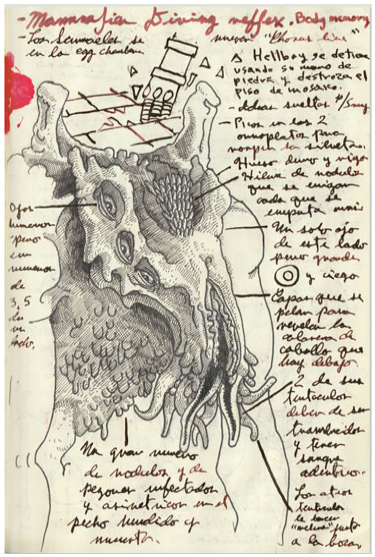 - Mammalian Diving reflex. Body memory
- Los Sammaeles se
en la egg chamber
Hellboy se detiene
usando su mano de
piedra y destroza el
piso de mosaico.
- Ideas sueltas
- Picos en los 2
omoplatos para
romper la silueta.
Hueso duro y
Hilera de nodulos
que se erizan
cada que se
emputa mas
Un solo ojo
de este lado
pero grande
y ciego
Capas que se
pelan para
revelar la
calavera de
caballo que
hay debajo
2 de sus
tentaculos
deben de ser
translucidos
y tener
sangre
adentro.
Los otros
tentaculos
junto
a la boca.
Ojos
humanos
pero
en
numeros
de
3, 5
de un
lado.
Un gran numero
de nodulos y de
pezones infectados
y asimetricos en el
pecho hundido y
muerto.